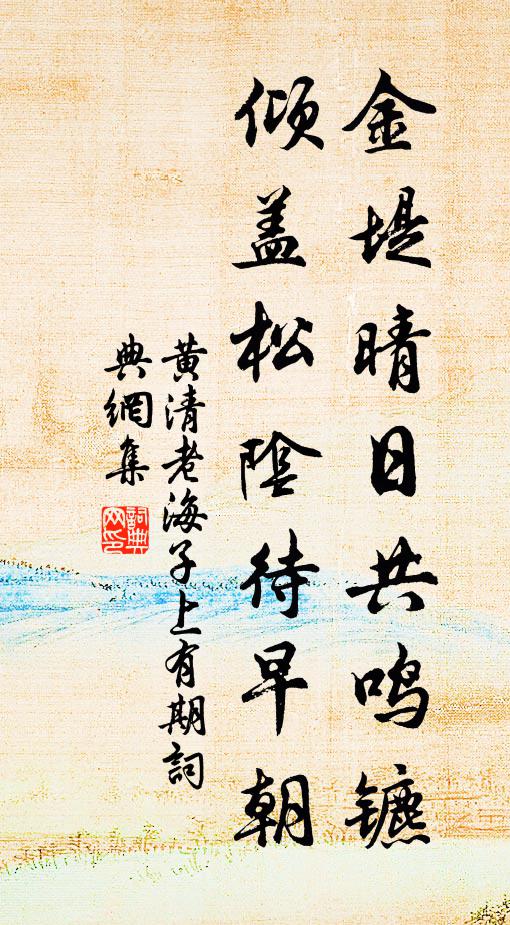 金堤晴日共鸣镳
倾盖松阴待早朝
黄清老海子上有期詞
典網集
詞典
网印